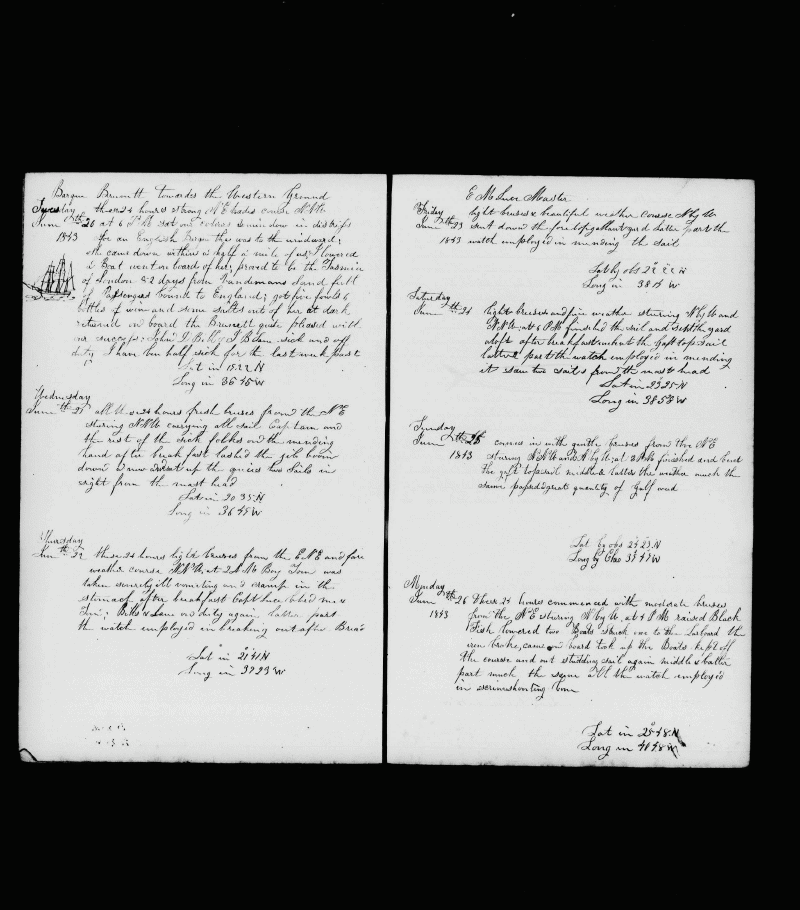 Barque Brunett towards the Western Ground
Tuesday these 24 hours strong N E trades course N N W
June th 20 at 6 P M set our colores down in distress
1843 for an English Barque that was to the windward;
she came down within a half a mile of us; I lowered
a Boat went on board of her; proved to be the Tasmin
of London 82 days from Vandmans Land full
of Passenges bound to England; got five fowls 6
bottles of wine and some sults out of her at dark
returned on board the Brunett quite pleased with
our success; John T. Betts & T Blane sick and off
duty I have ben half sick for the last week past
Lat in 18.22 N
Long in 36.45 W
Wednesday
June th 21 all these 24 hours fresh breses from the N E
stering N N W carrying all sail Captain and
the rest of the sick folks on the mending
hand after breakfast lashed the jib boom
down & now set up the guise two Sails in
sight from the mast head
Lat in 20.35 N
Long in 36.45 W
Thursday
June th 22 these 24 hours light breeses from the E N E and fare
weather course N N W, at 2 A M Boy Tom was
taken severely ill vometing and cramp in the
stomach after breakfast Capt Luce bled me &
Jim; Betts & Lane on duty again latter part
the watch employed in breaking out after Bread
Lat in 21.41 N
Long in 37.23 W
E M Luce Master
Friday light breses & beautiful wether course N by W
June th 23 sent down the foretopgallant yard latter part the
1843 watch employed in mending the sail
Lat by obs 22.22 N
Long in 38.15 W
Saturday
June th 24 light breeses and fine weather stering N by W and
N N W at 6 P M finished the sail and sent the yard
aloft after breakfast unbent the gaff topsail
latter part the watch employed in mending
it saw two sails from the mast head
Lat in 23.25 N
Long in 38.53 W
Sunday
June th 25 comes in with gentle breeses from the N E
1843 stering N N W and N by W: at 2 P M finished and bent
the gaff topsail middle & latter the wether much the
same passed great quantity of Gulf weed
Lat by obs 24.23 N
Long by Chro 39.47 W
Monday
June th 26 These 24 hours commenced with moderate breeses
1843 from the N E stering N by W, at 4 P M raised Black
Fish lowered two Boats struck one to the Larboard the
iron broke, came on board took up the Boats kept off
the course and out studding sail again middle & latter
part much the same all the watch employed
in scrimshonting bone
Lat in 25.48 N
Long in 40.48 W